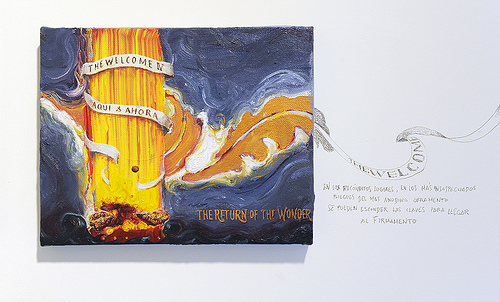 THEWELCOME
AQUI & AHORA
THE RETURN OF THE WONDER
THEWELCOME
EN LOS RECOVECOS COSALES, EN LOS MAS INSOSPECHADOS
PLIEGUES DEL MAS ANODINO ORNAMENTO
SE PUEDEN ESCONDER LAS CLAVES PARA LLEGAR
AL FIRMAMENTO